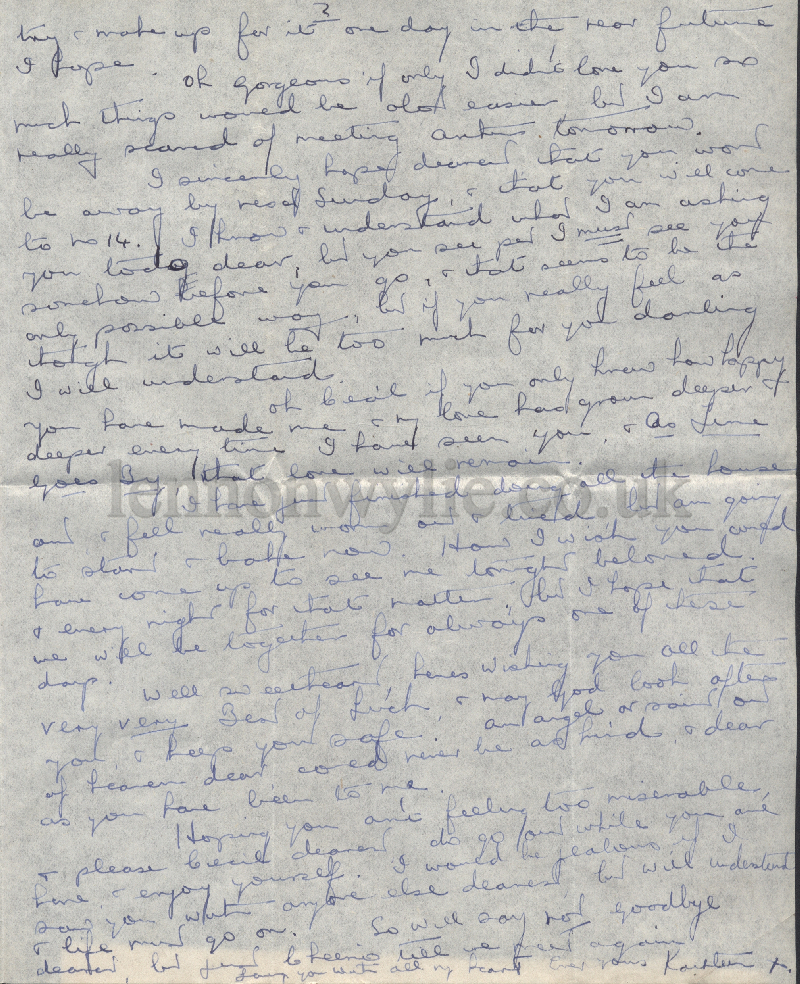 3
try & make up for it one day in the near future
I hope. Oh gorgeous if only I didn't love you so
much things would be alot easier but I am
really scared of meeting tomorrow.
I sincerely hope dearest that you wont
be away by next Sunday, & that you will come
to no 14. I know & understand what I am asking
you to do dear, but you see pet I must see you
somehow before you go, & that seems to be the
only possible way, but if you really feel as
though it will be too much for you darling
I will understand.
Oh Cecil if you only knew how happy
you have made me & my love has grown deeper &
deeper every time I have seen you, & As Time
Goes By that love will remain.
lennonwylie.co.uk
I have just finished doing all the house
and & feel really worn out & tired but am going
to start & bake now. How I wish you could
have come up to see me tonight beloved.
& every night for that matter, but I hope that
we will be together for always one of these
days.
Well sweetheart, heres wishing you all the
very very Best of Luck, & may God look after
you & keep you safe. An angel or saint out
of heaven dear could never be as kind & dear
as you have been to me.
Hoping you ain't feeling too miserable,
& please Cecil dearest do go out while you are
here & enjoy yourself. I would be jealous if I
saw you with anyone else dearest but will understand
& life must go on. So will say not goodbye
dearest, but just Cheerio till we meet again
Loving you with all my heart Ever yours Kathleen x.